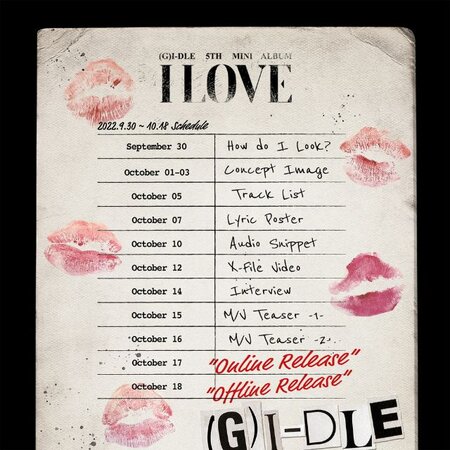 (G)I-DLE 5TH MINI ALBUM
I LOVE
2022.9.30 ~ 10.18 Schedule
September 30 How do I Look?
October 01-03 Concept Image
October 05 Track List
October 07 Lyric Poster
October 10 Audio Snippet
October 12 X-File Video
October 14 Interview
October 15 M/V Teaser -1-
October 16 M/V Teaser -2-
October 17 "Online Release"
October 18 "Offline Release"
(G)I-DLE